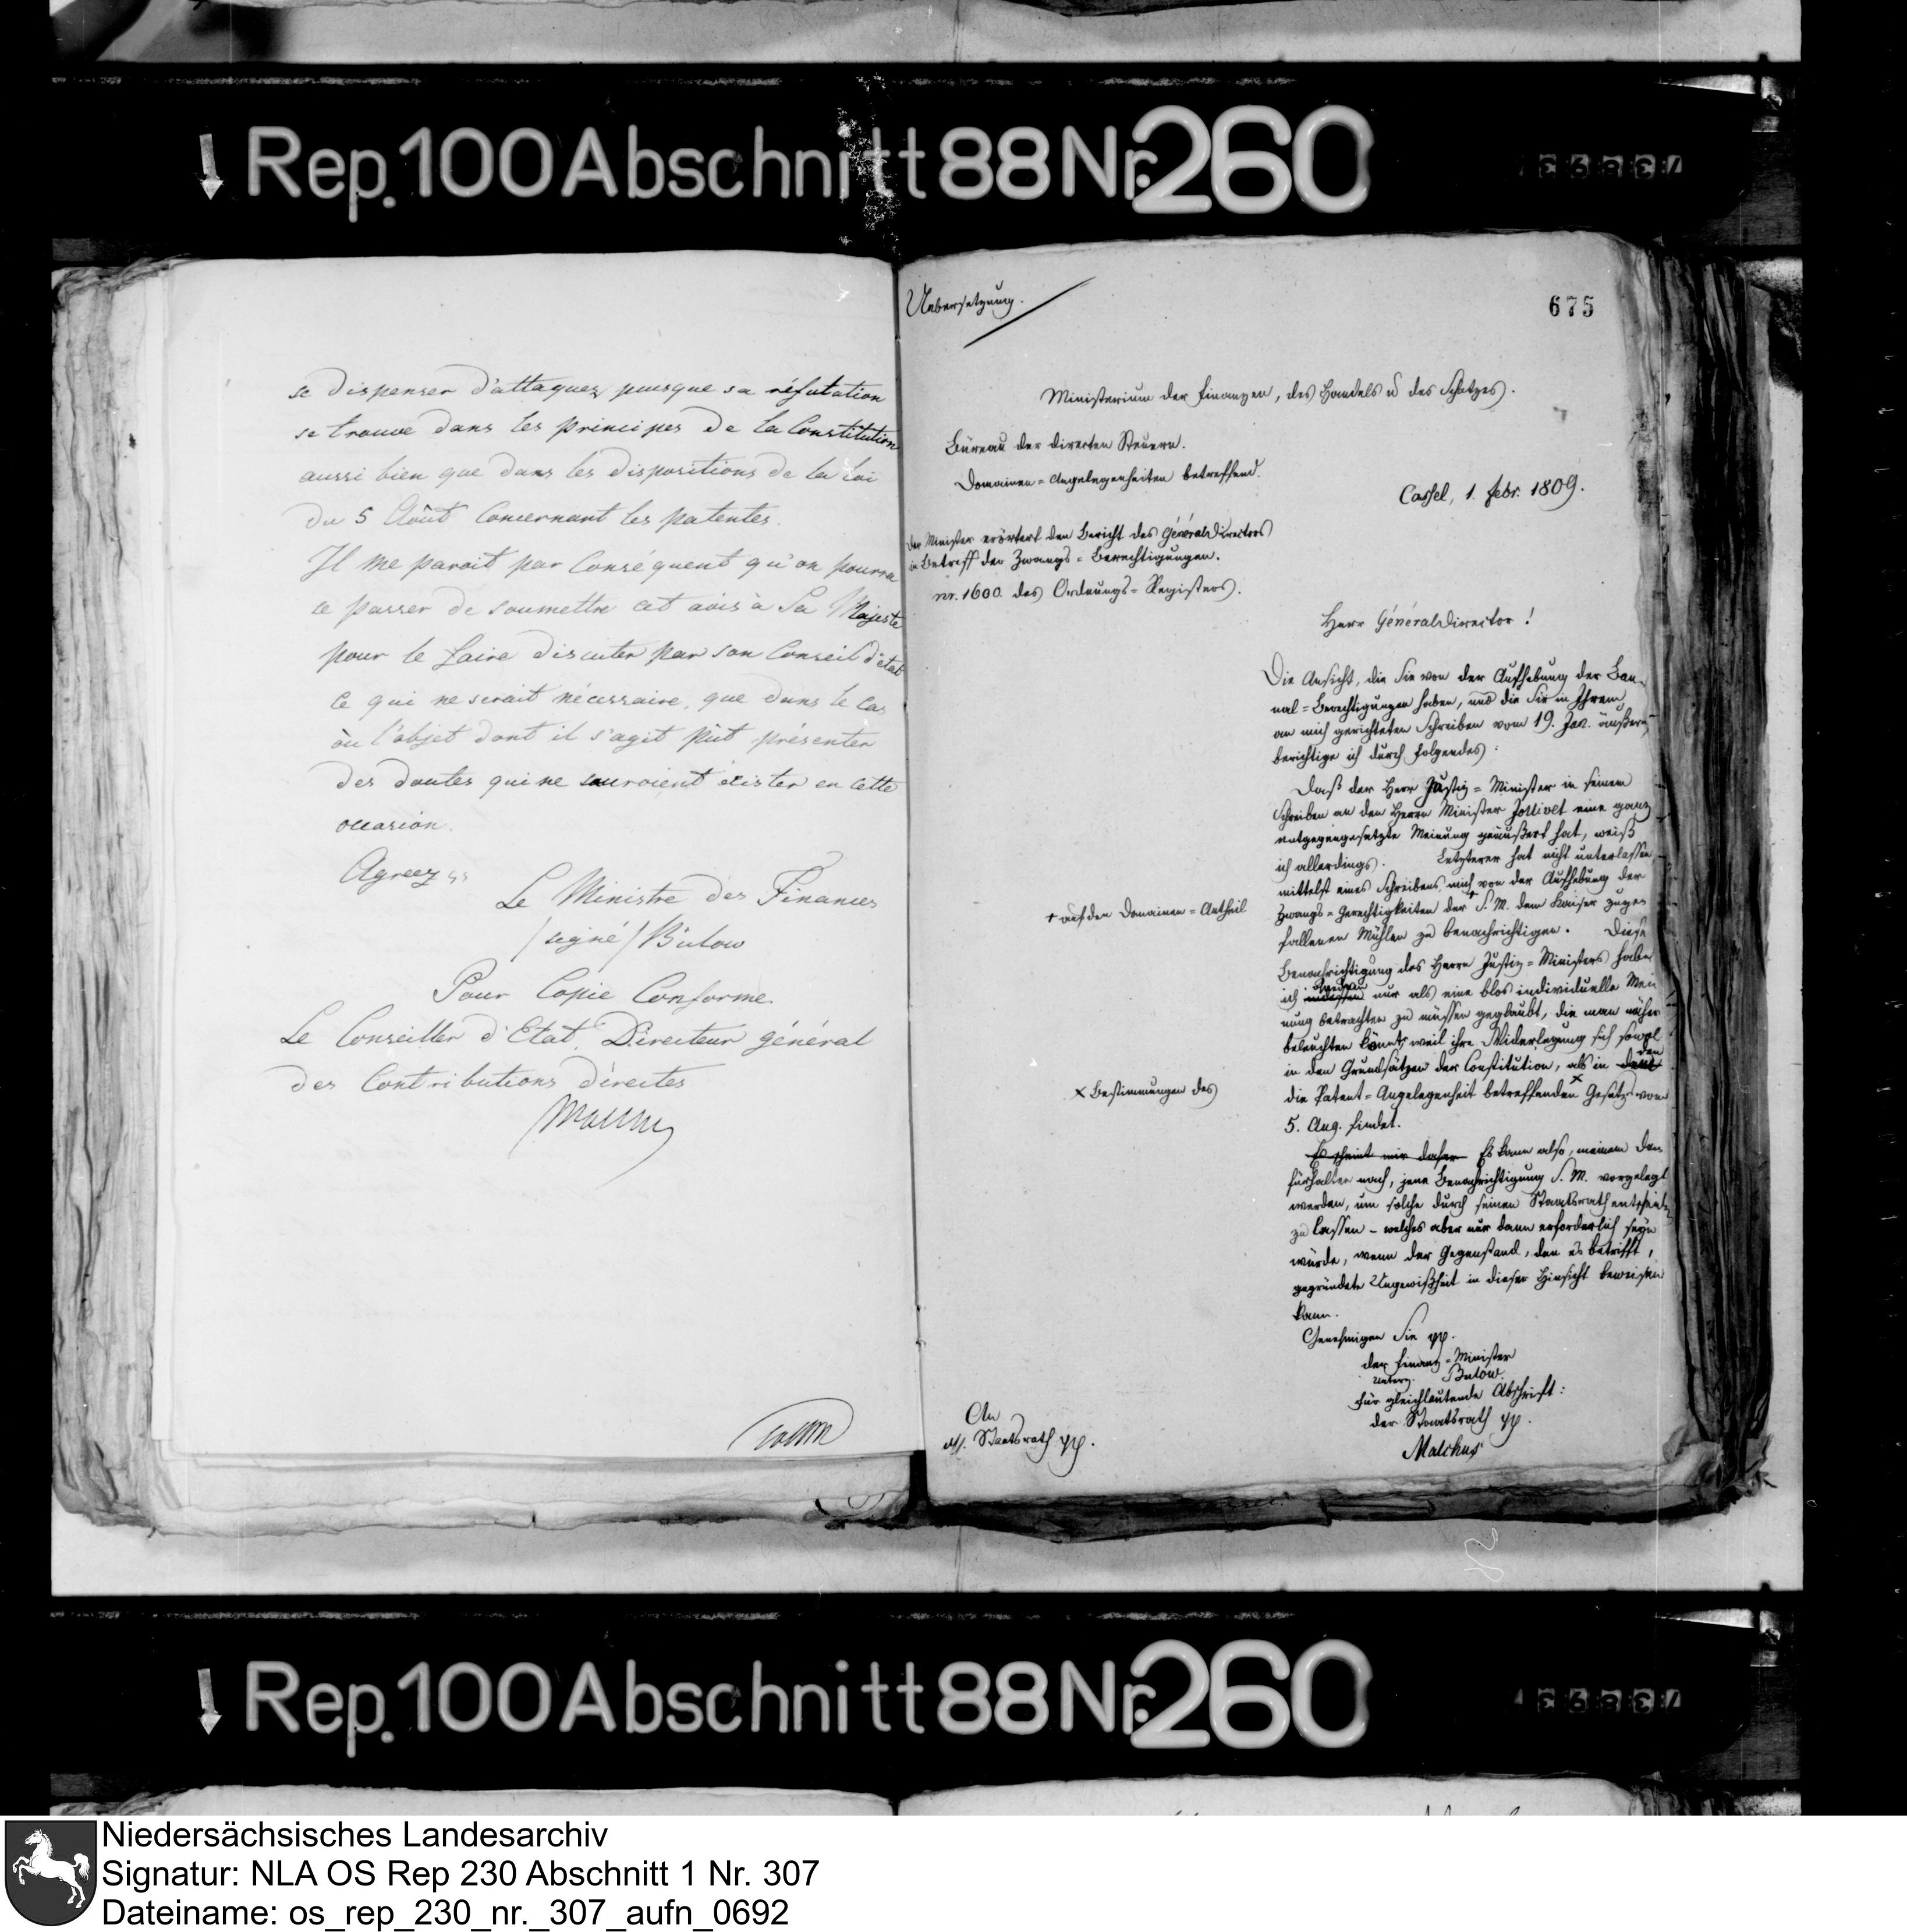 Rep. 100 Abschnitt 88 Nr. 260
se dispenser d'attaquer, puisque sa réfutation
se trouve dans les principes de la Constitution
aussi bien que dans les dispositions de la Loi
du 5 Août Concernant les patentes.
Il me paroit par Conséquent qu'on pourra
se passer de soumettre cet avis à Sa Majesté
pour le faire discuter par son Conseil d'état
ce qui ne serait nécessaire, que dans le Cas
où l'objet dont il s'agit pût présenter
des doutes qui ne sauroient éxister en cette
occasion.
Agreez
Le Ministre des Finances
/signé/ Bülow
Pour Copie Conforme.
Le Conseiller d'Etat, Directeur général
des Contributions directes
Uebersetzung.
675
Ministerium der Finanzen, des Handels u des Schatzes.
Büreau der directen Steuern.
Domainen=Angelegenheiten betreffend.
Cassel, 1. Febr. 1809.
Der Minister erörtert den Bericht des Généraldirectors
in Betreff der Zwangs=Berechtigungen.
nr. 1600. des Ordnungs=Registers.
Herr Généraldirector!
Die Ansicht, die Sie von der Aufhebung der Ban-
nal=Berechtigungen haben, und die Sie in Ihrem
an mich gerichteten Schreiben vom 19. Jan. äußern,
berichtige ich durch folgendes:
Daß der Herr Justiz=Minister in seinem
Schreiben an den Herrn Minister Jollivet eine ganz
entgegengesetzte Meinung geäußert hat, weiß
ich allerdings. Letzterer hat nicht unterlassen,
mittelst eines Schreibens mich von der Aufhebung der
+ auf den Domainen=Antheil
Zwangs=Gerechtigkeiten der + S. M. dem Kaiser zuge-
fallenen Mühlen zu benachrichtigen. Diese
Benachrichtigung des Herrn Justiz=Ministers habe
ich indessen nur als eine blos individuelle Mei-
nung betrachten zu müssen geglaubt, die man näher
beleuchten könnte, weil ihre Widerlegung sich sowol
in den Grundsätzen der Constitution, als in den
x Bestimmungen des
die Patent=Angelegenheit betreffenden x Gesetzes vom
5. Aug. findet.
Es scheint mir daher Es kann also, meinem Da-
fürhalten nach, jene Benachrichtigung S. M. vorgelegt
werden, um solche durch seinen Staatsrath entscheiden
zu lassen – welches aber nur dann erforderlich seyn
würde, wenn der Gegenstand, den es betrifft,
gegründete Ungewißheit in dieser Hinsicht beweisen
kann.
Genehmigen Sie pp.
der Finanz=Minister
unterz. Bulow.
Für gleichlautende Abschrift:
der Staatsrath pp.
Malchus
An
Staatsrath pp.
Rep. 100 Abschnitt 88 Nr. 260
Niedersächsisches Landesarchiv
Signatur: NLA OS Rep 230 Abschnitt 1 Nr. 307
Dateiname: os_rep_230_nr._307_aufn_0692